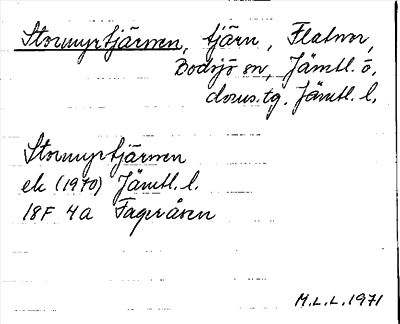 Stormyrtjärnen, tjärn, Flatnor,
Bodsjö sn, Jämtl. ö.
doms.tg. Jämtl. l.
Stormyrtjärnen
ek (1970) Jämtl. l.
18F 4a Fageråsen
M.L.L. 1971